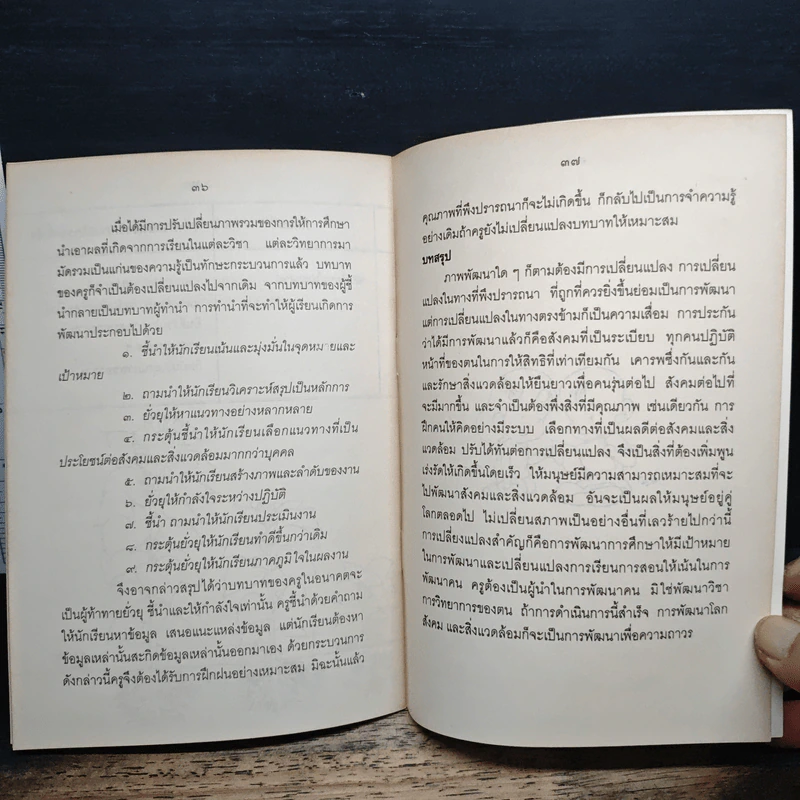 ๓๖
เมื่อได้มีการปรับเปลี่ยนภาพรวมของการให้การศึกษา
นำเอาผลที่เกิดจากการเรียนในแต่ละวิชา แต่ละวิทยาการมา
มัดรวมเป็นแก่นของความรู้เป็นทักษะกระบวนการแล้ว บทบาท
ของครูก็จำเป็นต้องเปลี่ยนแปลงไปจากเดิม จากบทบาทของผู้ชี้
นำกลายเป็นบทบาทผู้ทำนำ การทำนำที่จะทำให้ผู้เรียนเกิดการ
พัฒนาประกอบไปด้วย
๑. ชี้นำให้นักเรียนเน้นและมุ่งมั่นในจุดหมายและ
เป้าหมาย
๒. ถามนำให้นักเรียนวิเคราะห์สรุปเป็นหลักการ
๓. ยั่วยุให้หาแนวทางอย่างหลากหลาย
๔. กระตุ้นชี้นำให้นักเรียนเลือกแนวทางที่เป็น
ประโยชน์ต่อสังคมและสิ่งแวดล้อมมากกว่าบุคคล
๕. ถามนำให้นักเรียนสร้างภาพและลำดับของงาน
๖. ยั่วยุให้กำลังใจระหว่างปฏิบัติ
๗. ชี้นำ ถามนำให้นักเรียนประเมินงาน
๘. กระตุ้นยั่วยุให้นักเรียนทำดีขึ้นกว่าเดิม
๙. กระตุ้นยั่วยุให้นักเรียนภาคภูมิใจในผลงาน
จึงอาจกล่าวสรุปได้ว่าบทบาทของครูในอนาคตจะ
เป็นผู้ท้าทายยั่วยุ ชี้นำและให้กำลังใจเท่านั้น ครูชี้นำด้วยคำถาม
ให้นักเรียนหาข้อมูล เสนอแนะแหล่งข้อมูล แต่นักเรียนต้องหา
ข้อมูลเหล่านั้นสะกิดข้อมูลเหล่านั้นออกมาเอง ด้วยกระบวนการ
ดังกล่าวนี้ครูจึงต้องได้รับการฝึกฝนอย่างเหมาะสม มิฉะนั้นแล้ว
๓๗
คุณภาพที่พึงปรารถนาก็จะไม่เกิดขึ้น ก็กลับไปเป็นการจำความรู้
อย่างเดิมถ้าครูยังไม่เปลี่ยนแปลงบทบาทให้เหมาะสม
บทสรุป
ภาพพัฒนาใด ๆ ก็ตามต้องมีการเปลี่ยนแปลง การเปลี่ยน
แปลงในทางที่พึงปรารถนา ที่ถูกที่ควรยิ่งขึ้นย่อมเป็นการพัฒนา
แต่การเปลี่ยนแปลงในทางตรงข้ามก็เป็นความเสื่อม การประกัน
ว่าได้มีการพัฒนาแล้วก็คือสังคมที่เป็นระเบียบ ทุกคนปฏิบัติ
หน้าที่ของตนในการให้สิทธิที่เท่าเทียมกัน เคารพซึ่งกันและกัน
และรักษาสิ่งแวดล้อมให้ยืนยาวเพื่อคนรุ่นต่อไป สังคมต่อไปที่
จะมีมากขึ้น และจำเป็นต้องพึ่งสิ่งที่มีคุณภาพ เช่นเดียวกัน การ
ฝึกคนให้คิดอย่างมีระบบ เลือกทางที่เป็นผลดีต่อสังคมและสิ่ง
แวดล้อม ปรับได้ทันต่อการเปลี่ยนแปลง จึงเป็นสิ่งที่ต้องเพิ่มพูน
เร่งรัดให้เกิดขึ้นโดยเร็ว ให้มนุษย์มีความสามารถเหมาะสมที่จะ
ไปพัฒนาสังคมและสิ่งแวดล้อม อันจะเป็นผลให้มนุษย์อยู่คู่
โลกตลอดไป ไม่เปลี่ยนสภาพเป็นอย่างอื่นที่เลวร้ายไปกว่านี้
การเปลี่ยนแปลงสำคัญก็คือการพัฒนาการศึกษาให้มีเป้าหมาย
ในการพัฒนาและเปลี่ยนแปลงการเรียนการสอนให้เน้นในการ
พัฒนาคน ครูต้องเป็นผู้นำในการพัฒนาคน มิใช่พัฒนาวิชา
การวิทยาการของตน ถ้าการดำเนินการนี้สำเร็จ การพัฒนาโลก
สังคม และสิ่งแวดล้อมก็จะเป็นการพัฒนาเพื่อความถาวร